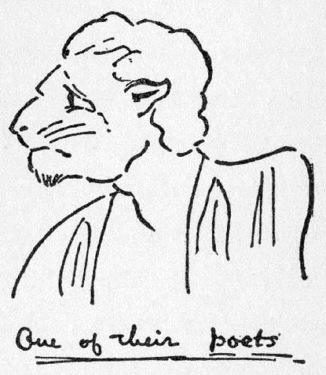 One of their poets